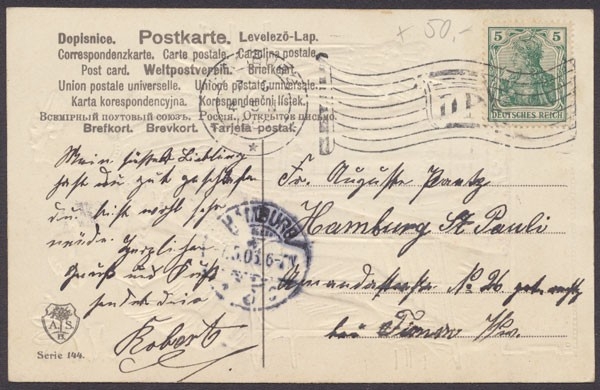 + 50,-
Dopisnice. Postkarte. Levelező-Lap.
Correspondenzkarte. Carte postale. Cartolina postale.
Post card. Weltpostverein. Briefkaart.
Union postale universelle. Unione postale universale.
Karta korespondencyjna. Korespondenční lístek.
Всемірный почтовый союзъ. Россія. Открытое письмо.
Brefkort. Brevkort. Tarjeta postal.
5 5
DEUTSCHES REICH
Mein süsses Liebling
hast du gut geschlafen
du bist wohl sehr
müde. Herzlichen
Gruß und Kuß
sendet dein
Robert
Fr. Auguste
Hamburg St Pauli
Amandastrasse No 26
bei
HAMBURG
.5.05.6-7
A. S.
B.
Serie 144.